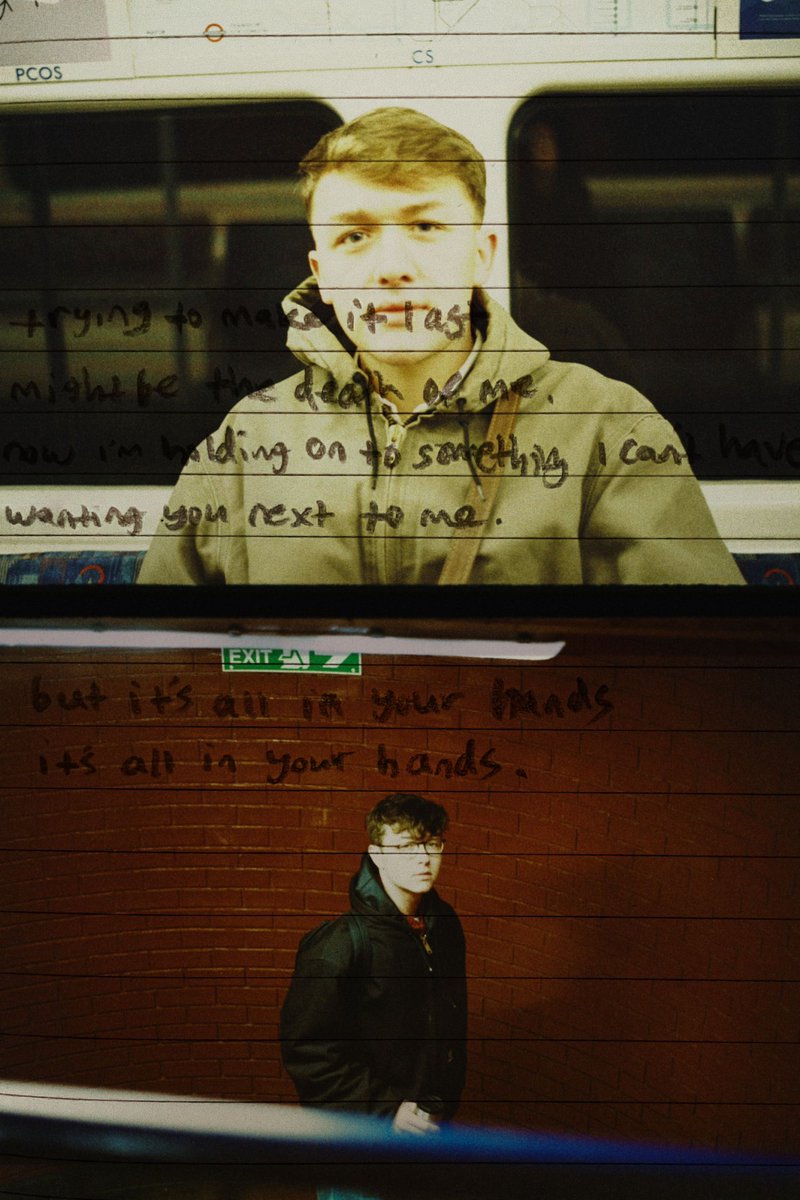 PCOS
CS
trying to make it last
might be the death of me.
now i'm holding on to something i can't have
wanting you next to me.
EXIT
but it's all in your hands
it's all in your hands.